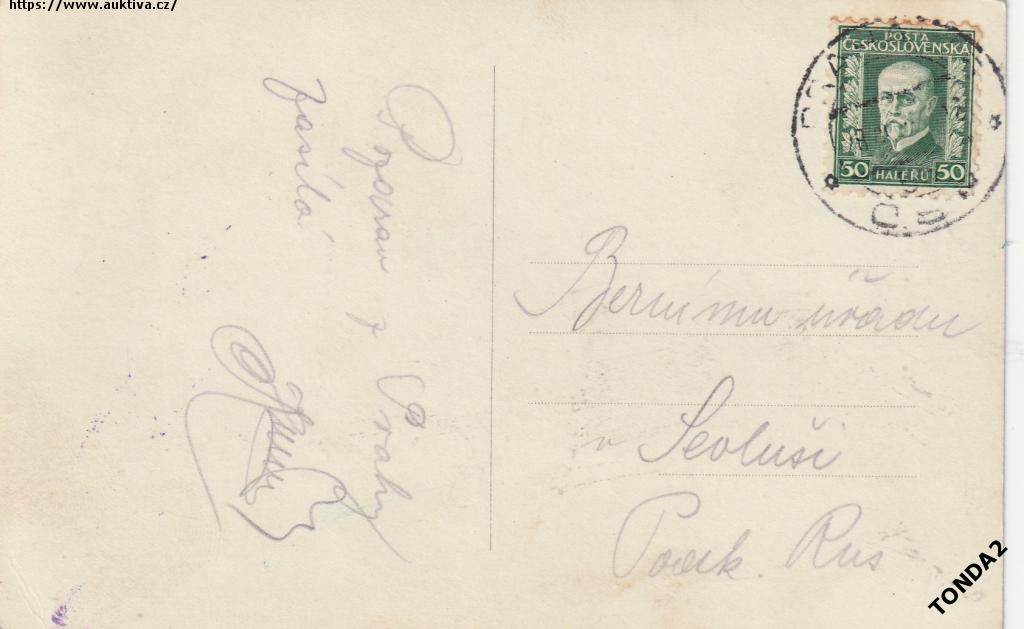 https://www.auktiva.cz/
POŠTA
ČESKOSLOVENSKÁ
50 HALÉŘŮ 50
Pozdrav z Prahy
zasílá
Bernímu úřadu
v Sevluši
Podk. Rus
TONDA2